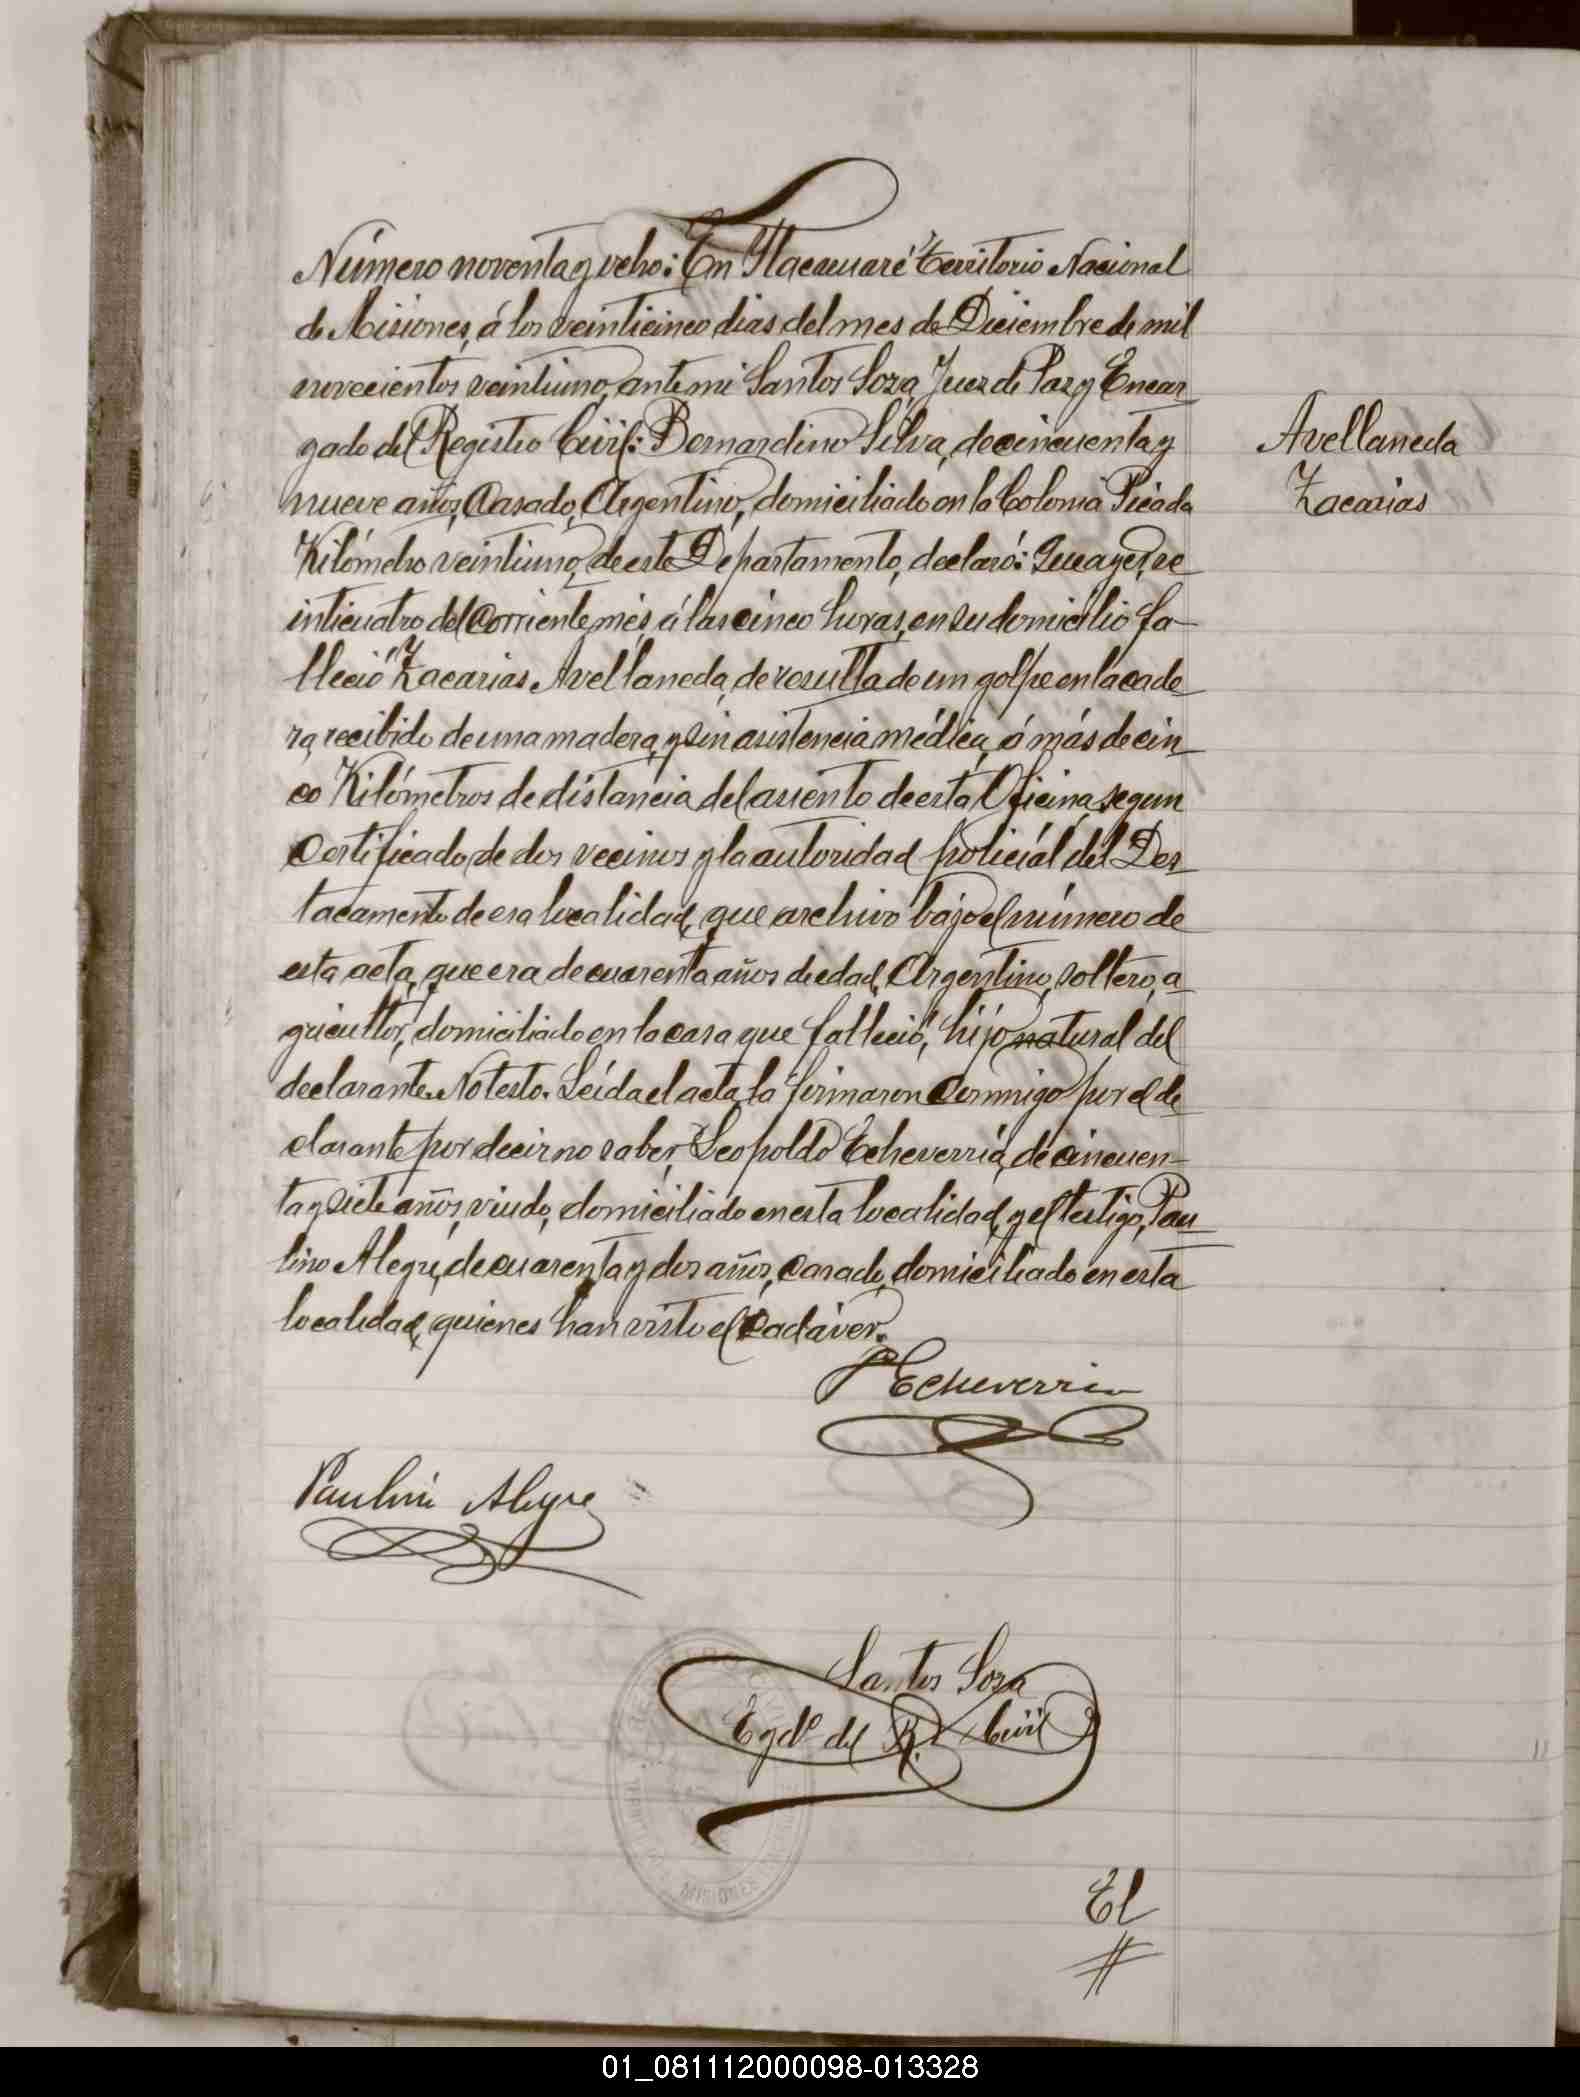 Número noventa y ocho: En Itacaruaré Territorio Nacional
de Misiones, á los veinticinco dias del mes de Diciembre de mil
novecientos veintiuno, ante mi Santos Soza, Juez de Paz y Encar-
gado del Registro Civil: Bernardino Silva, de cincuenta y
nueve años, Casado, Argentino, domiciliado en la Colonia Picada
Kilómetro veintiuno, de este Departamento, declaró: Que ayer, ve
inticuatro del corriente més, á las cinco horas, en su domicilio fa-
lleció Zacarias Avellaneda, de resulta de un golpe en la cade-
ra, recibido de una madera, y sin asistencia médica, á más de cin-
co Kilómetros de distancia del asiento de esta Oficina, segun
Certificado de dos vecinos y la autoridad policiál del Des-
tacamento de esa localidad, que archivo bajo el número de
esta acta, que era de cuarenta años de edad, Argentino, soltero, a-
gricultor, domiciliado en la casa que falleció, hijo natural del
declarante. No testo. Leída el acta, la firmaron Conmigo por el de-
clarante por decir no saber, Leopoldo Echeverría, de cincuen-
ta y siete años, viudo, domiciliado en esta localidad, y el testigo, Pau-
lino Alegre, de cuarenta y dos años, Casado, domiciliado en esta
localidad, quienes han visto el Cadáver.
Avellaneda
Zacarias
Echeverria
Paulino Alegre
Santos Soza
Egdo. del R. Civil
MISIONES
El
01_081112000098-013328